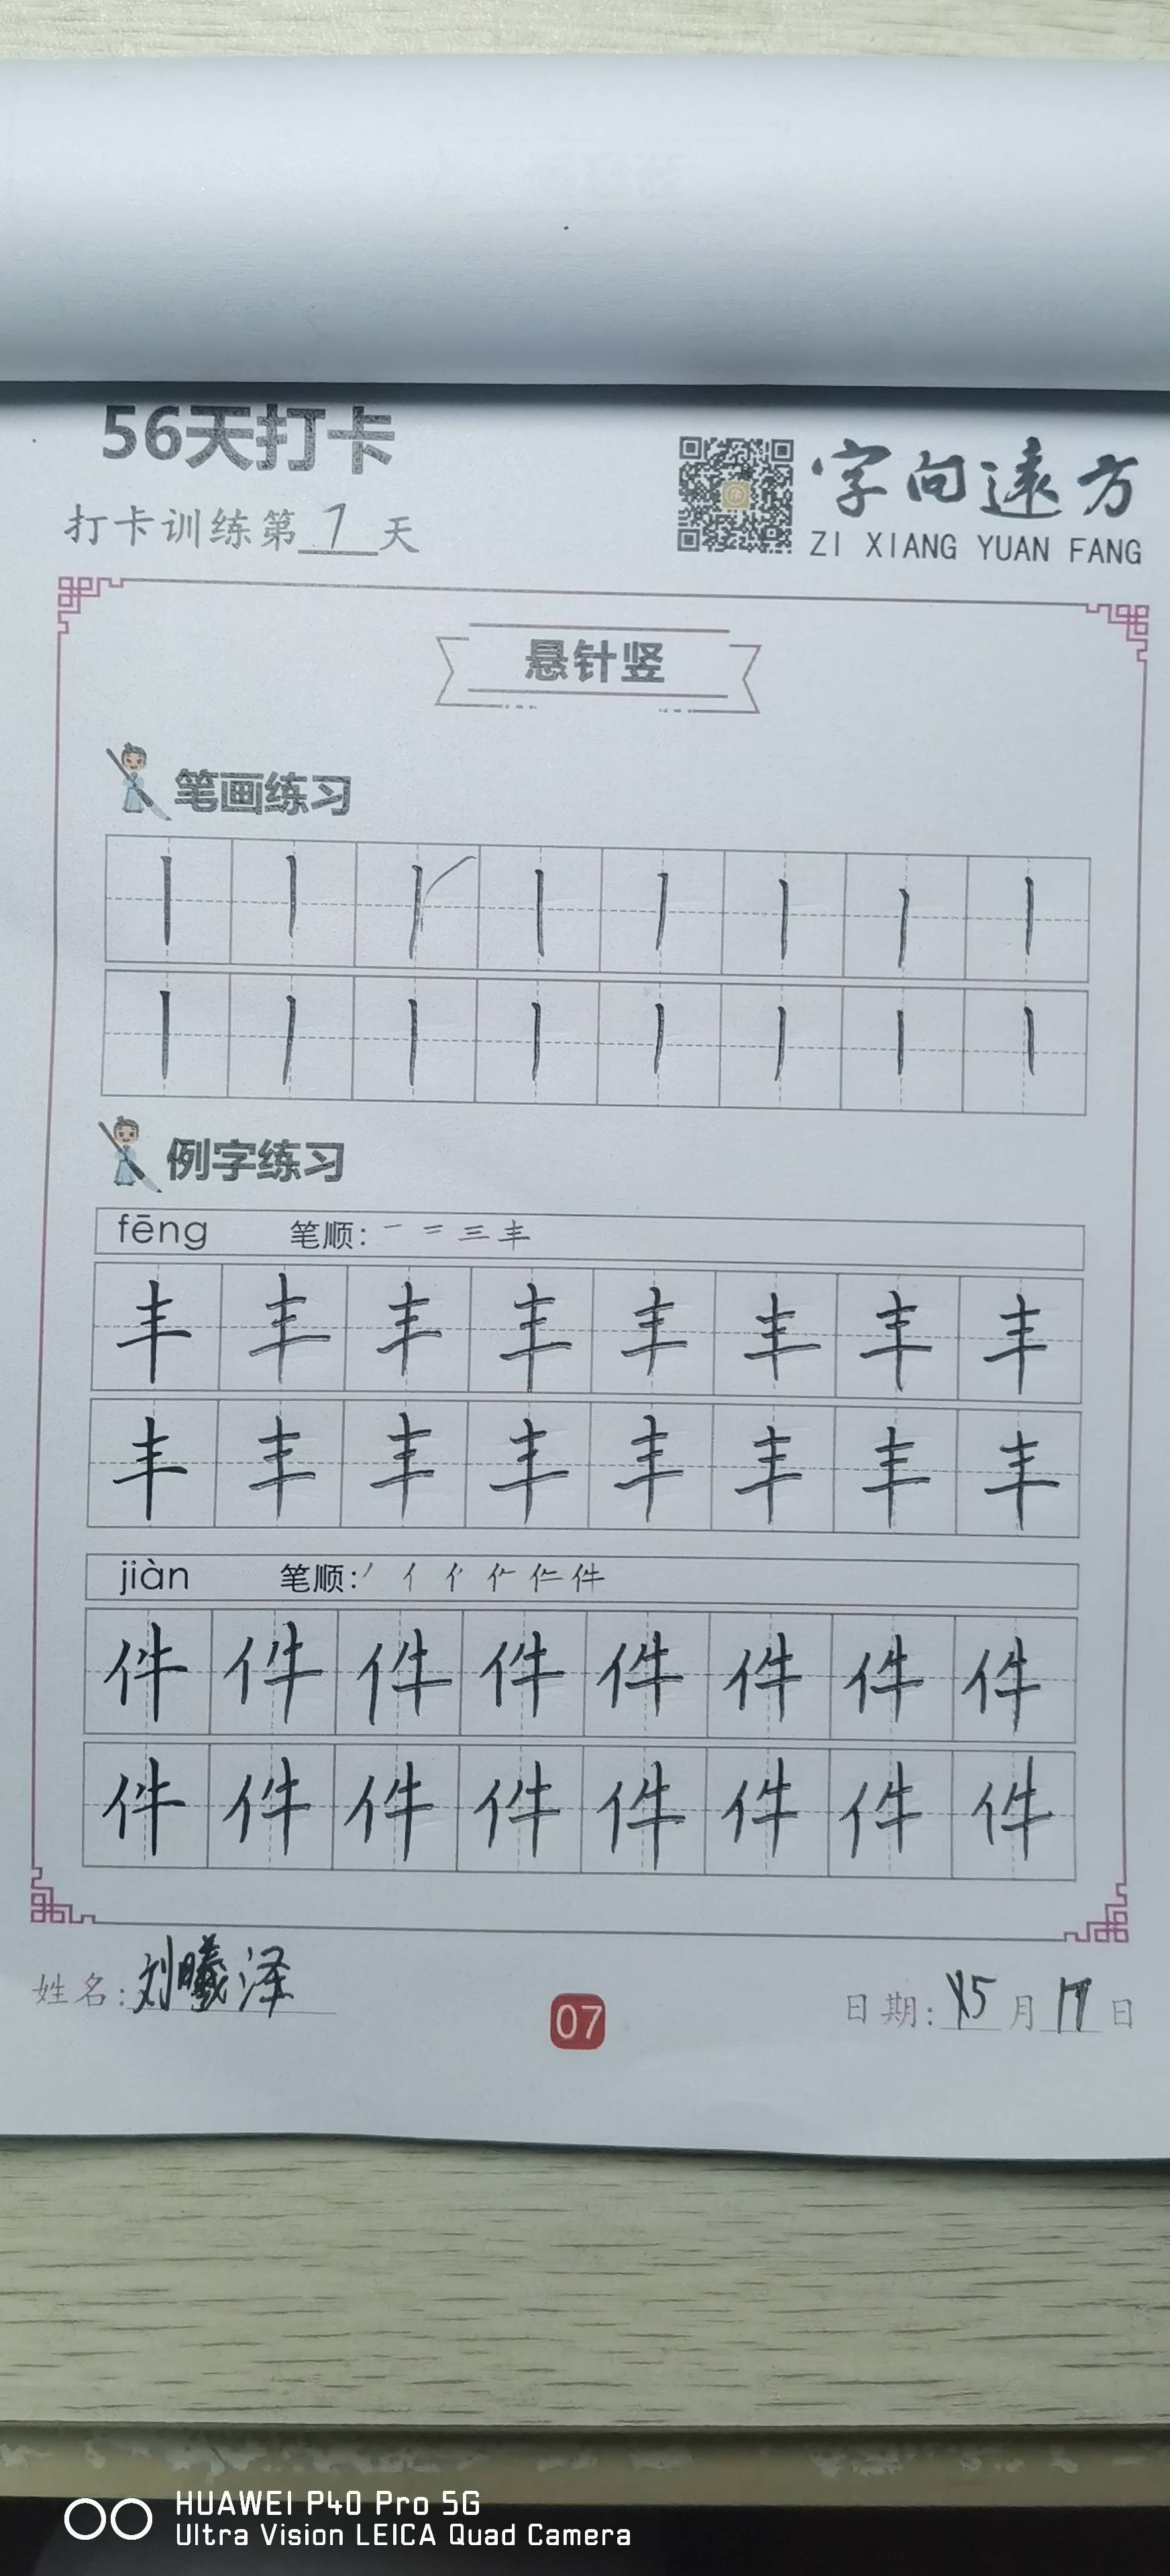 56天打卡
打卡训练第 7 天
字向遠方
ZI XIANG YUAN FANG
悬针竖
笔画练习
丨 丨 丨 丨 丨 丨 丨 丨
丨 丨 丨 丨 丨 丨 丨 丨
例字练习
fēng 笔顺: 一 二 三 丰
丰 丰 丰 丰 丰 丰 丰 丰
丰 丰 丰 丰 丰 丰 丰 丰
jiàn 笔顺: 丿 亻 件
件 件 件 件 件 件 件 件
件 件 件 件 件 件 件 件
姓名: 刘曦泽
07
日期: 5 月 17 日
HUAWEI P40 Pro 5G
Ultra Vision LEICA Quad Camera